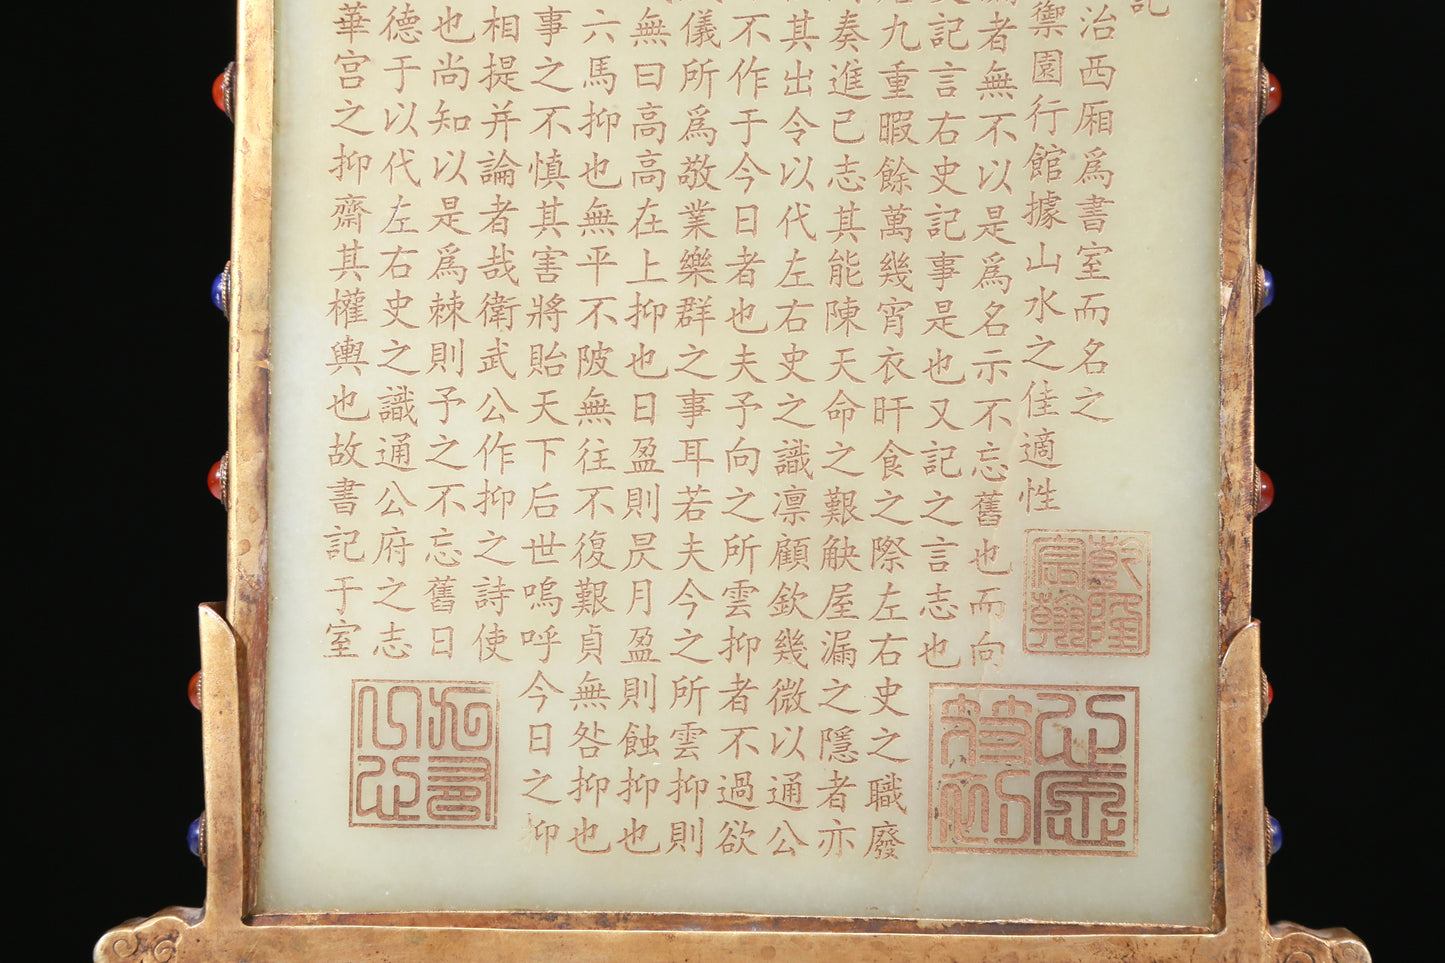 記
治西厢爲書室而名之
禦園行館據山水之佳適性
乾隆宸翰
者無不以是爲名示不忘舊也而向
史記言右史記事是也又記之言志也
九重暇餘萬幾宵衣旰食之際左右史之職廢
奏進己志其能陳天命之艱觖屋漏之隱者亦
其出令以代左右史之識凛顧欽幾微以通公
不作于今日者也夫予向之所雲抑者不過欲
儀所爲敬業樂群之事耳若夫今之所雲抑則
無曰高高在上抑也日盈則昃月盈則蝕抑也
六馬抑也無平不陂無往不復艱貞無咎抑也
事之不慎其害將貽天下后世嗚呼今日之抑
相提并論者哉衛武公作抑之詩使
也尚知以是爲棘則予之不忘舊日
德于以代左右史之識通公府之志
華宮之抑齋其權輿也故書記于室